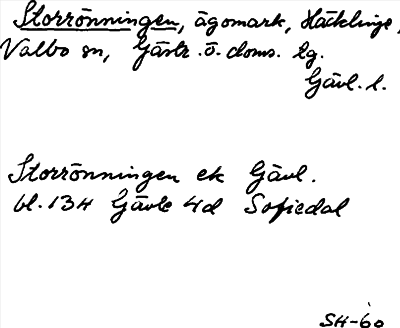 Storrönningen, ägomark, Häcklinge,
Valbo sn, Gästr. ö. doms. lg.
Gävl. l.
Storrönningen ek Gävl.
bl. 134 Gävle 4d Sofiedal
SH-60